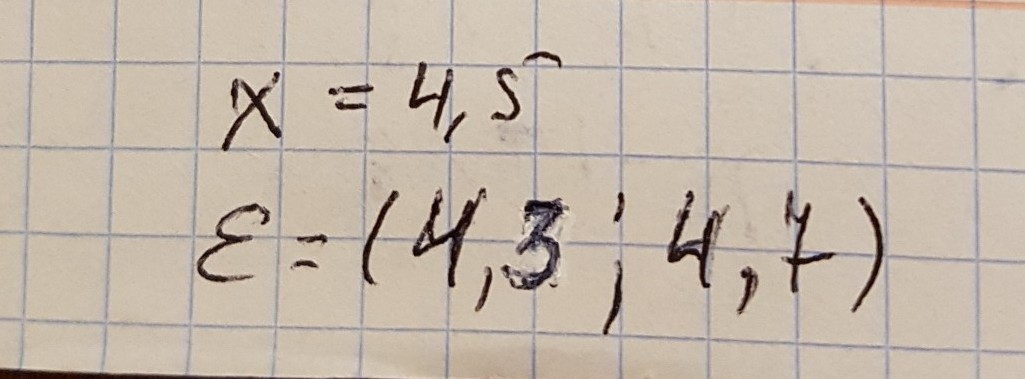 x = 4,5
ε = (4,3 ; 4,7)